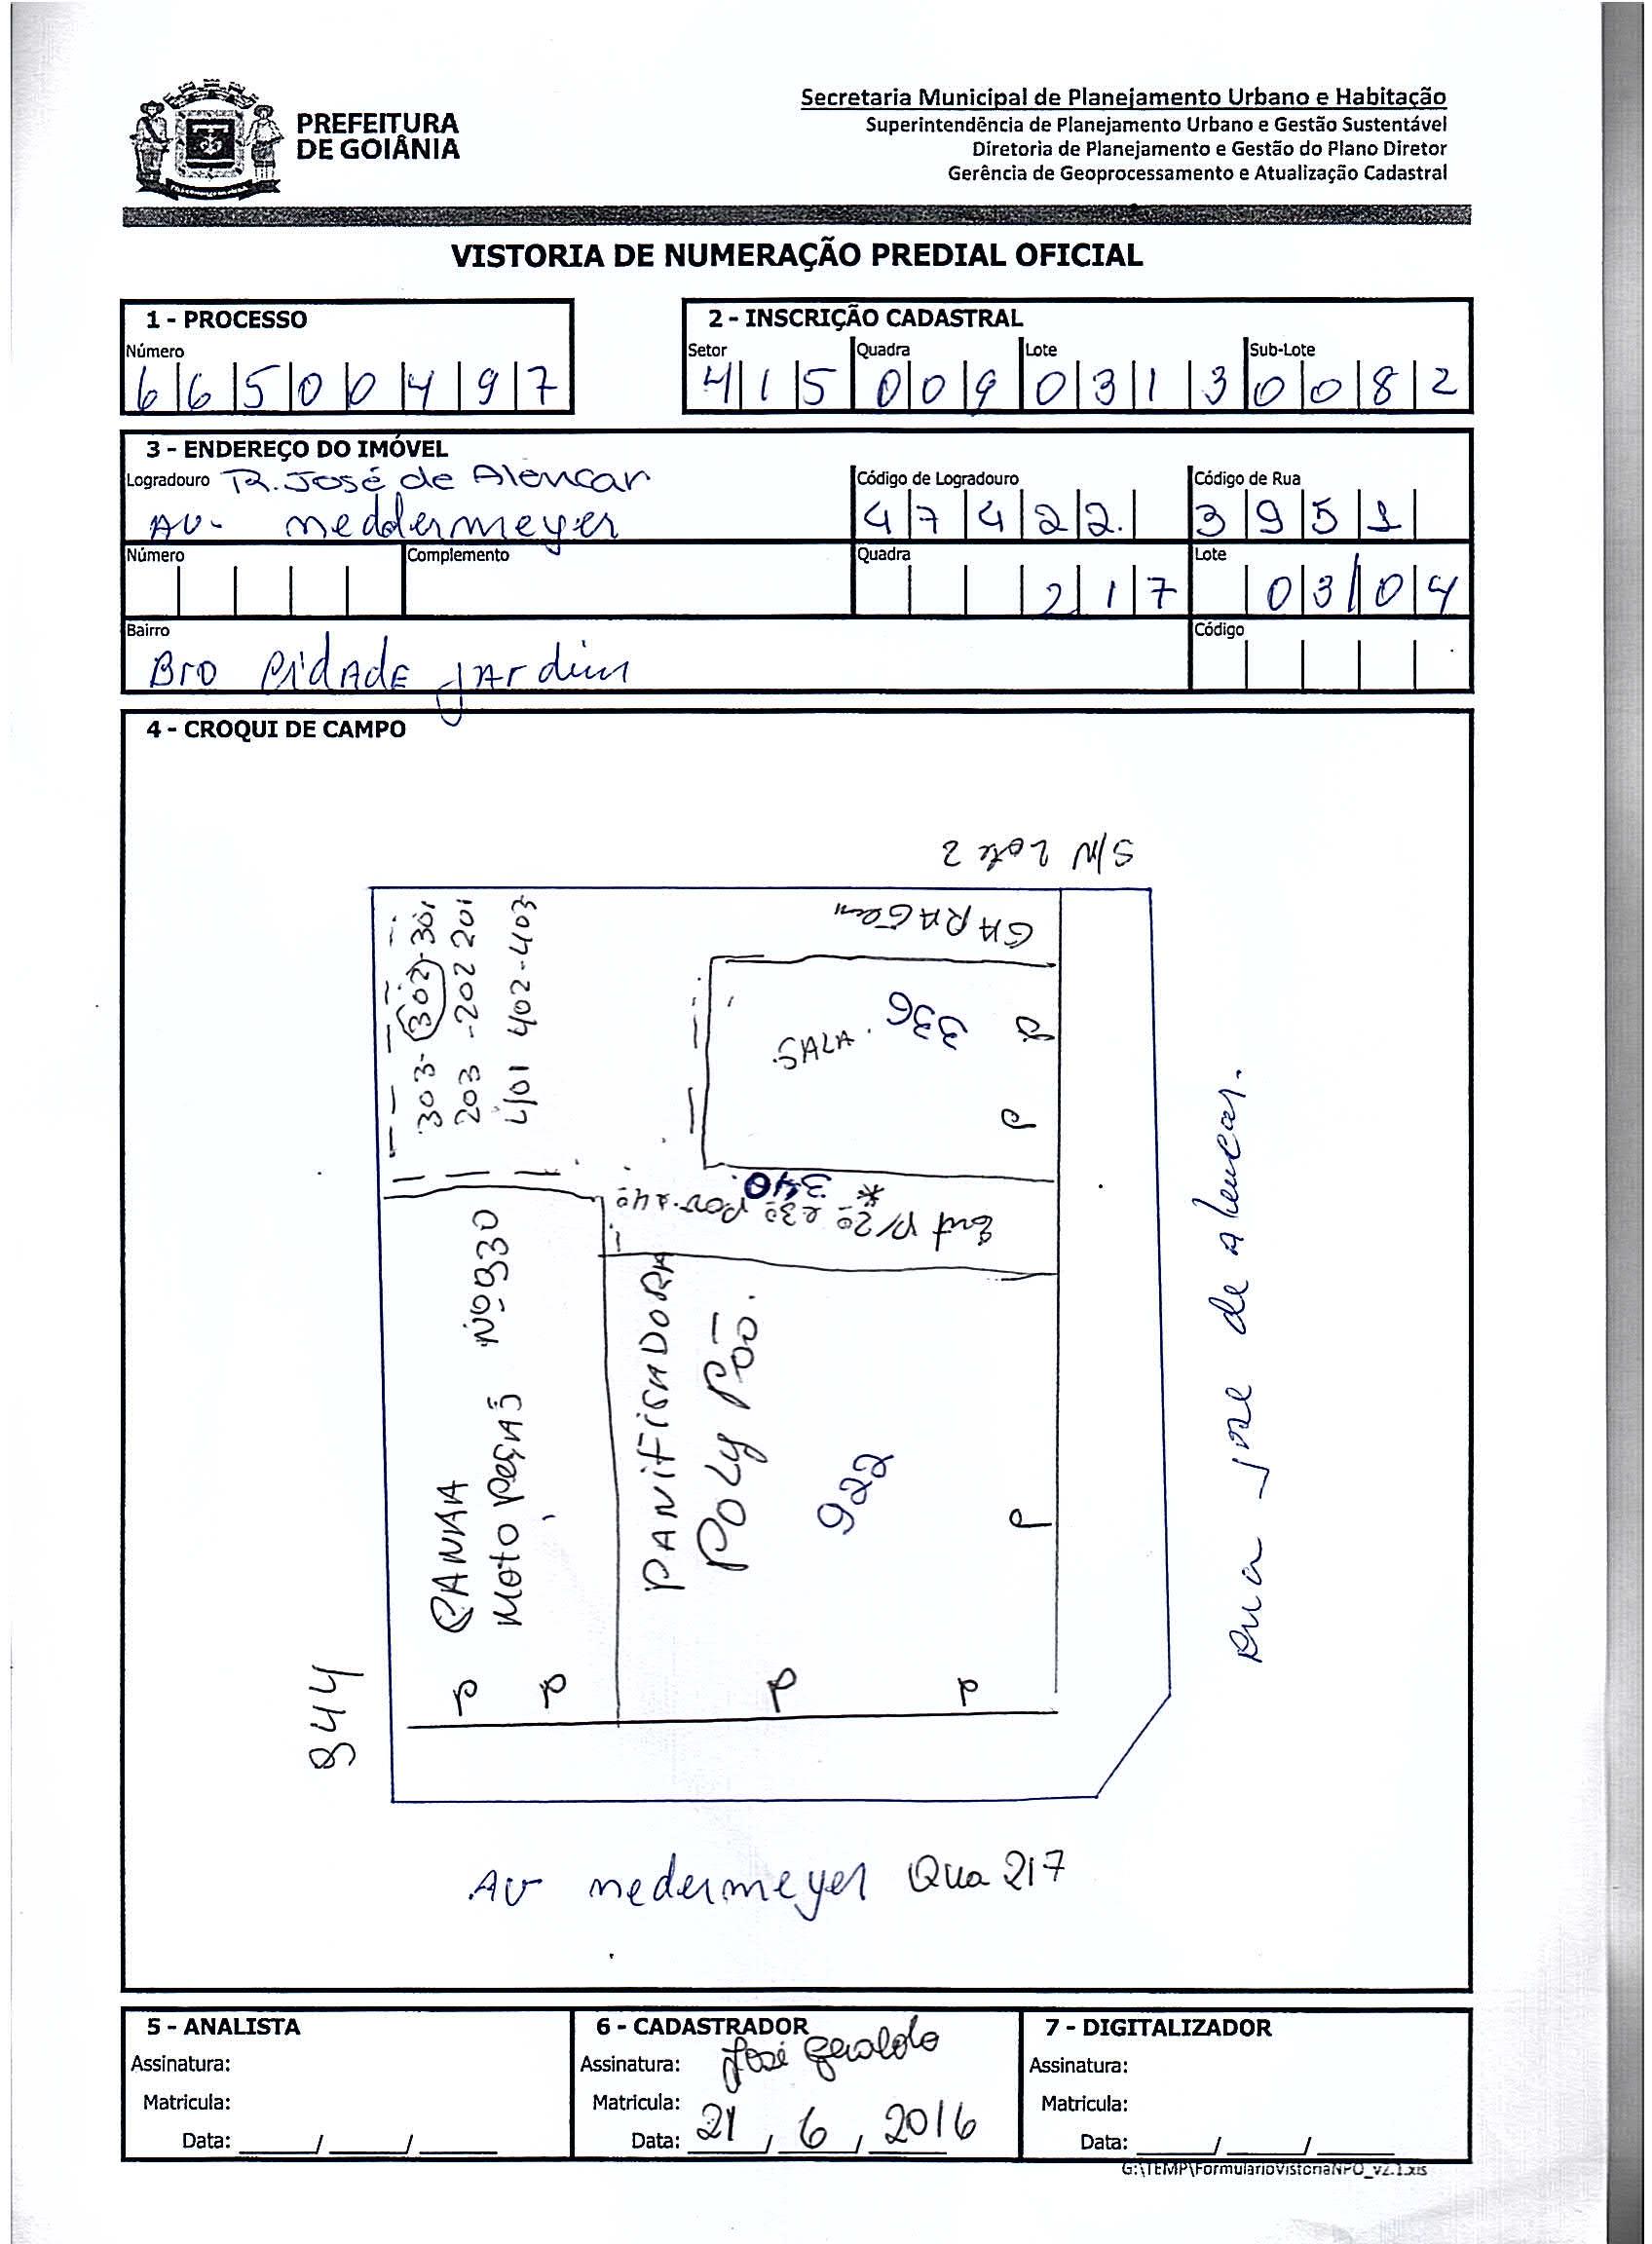 PREFEITURA
DE GOIÂNIA
Secretaria Municipal de Planejamento Urbano e Habitação
Superintendência de Planejamento Urbano e Gestão Sustentável
Diretoria de Planejamento e Gestão do Plano Diretor
Gerência de Geoprocessamento e Atualização Cadastral
VISTORIA DE NUMERAÇÃO PREDIAL OFICIAL
1 - PROCESSO
Número
66500497
2 - INSCRIÇÃO CADASTRAL
Setor Quadra Lote Sub-Lote
415 009 0313 0082
3 - ENDEREÇO DO IMÓVEL
Logradouro R. José de Alencar
Av. neddermeyer
Código de Logradouro
47422
Código de Rua
3951
Número
Complemento
Quadra
217
Lote
03/04
Bairro
Bro Cidade jardim
Código
4 - CROQUI DE CAMPO
S/N Lote 2
GARAGem
303-302-301
203-202 201
401 402-403
SALA
336
340
Ent p/ 2º e 3º
PANIFICADORA
POLY Põo.
922
CANAA Nº 930
Moto PeçAs
P
P
P
P
P
P
844
Rua jose de alencar.
Av nedermeyer Qua 217
5 - ANALISTA
Assinatura:
Matricula:
Data: ____/____/____
6 - CADASTRADOR
Assinatura: José Geraldo
Matricula:
Data: 21/6/2016
7 - DIGITALIZADOR
Assinatura:
Matricula:
Data: ____/____/____
G:\TEMP\FormularioVistoriaNPO_v2.1.xls